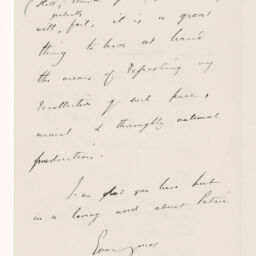 (Still,
gradually
will, fail, it is a great
thing to have at hand
the means of refreshing my
recollection of such pure,
musical & thoroughly national
productions.
I am glad you have put
in a loving word about Petrie
Ever yours